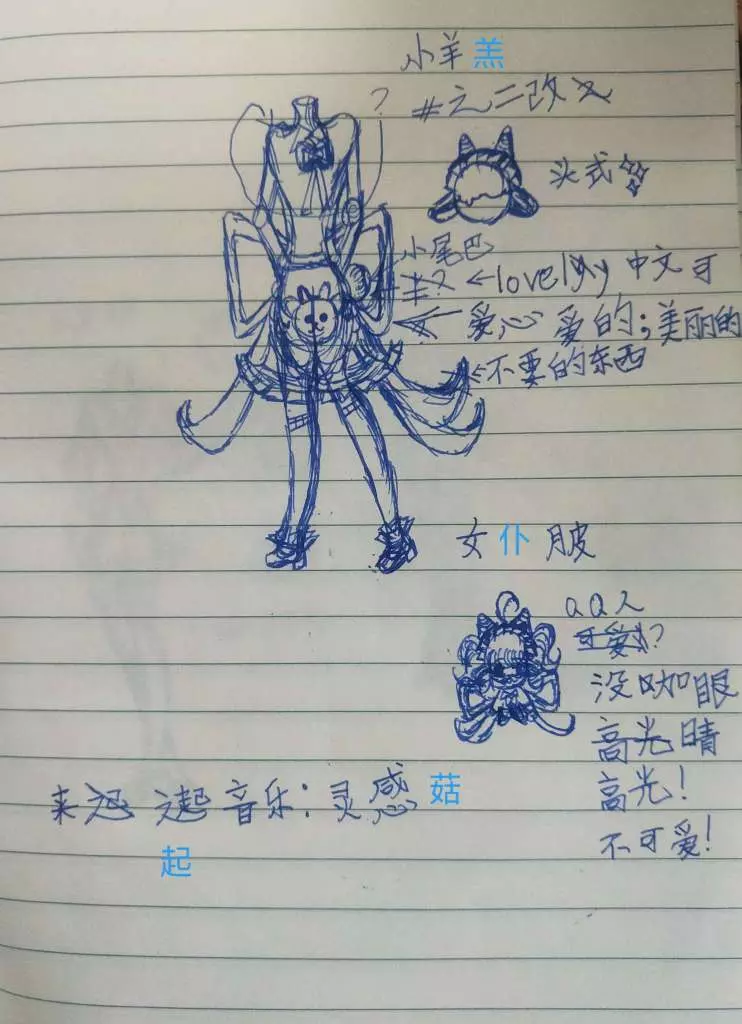 小羊羔
?
#之二改
头式
小尾巴
羊? ←lovelyy 中文可
爱心 爱的;美丽的
←不要的东西
女仆皮
QQ人
可爱?
没咖眼
高光睛
高光!
不可爱!
来 起音乐:灵感菇
起